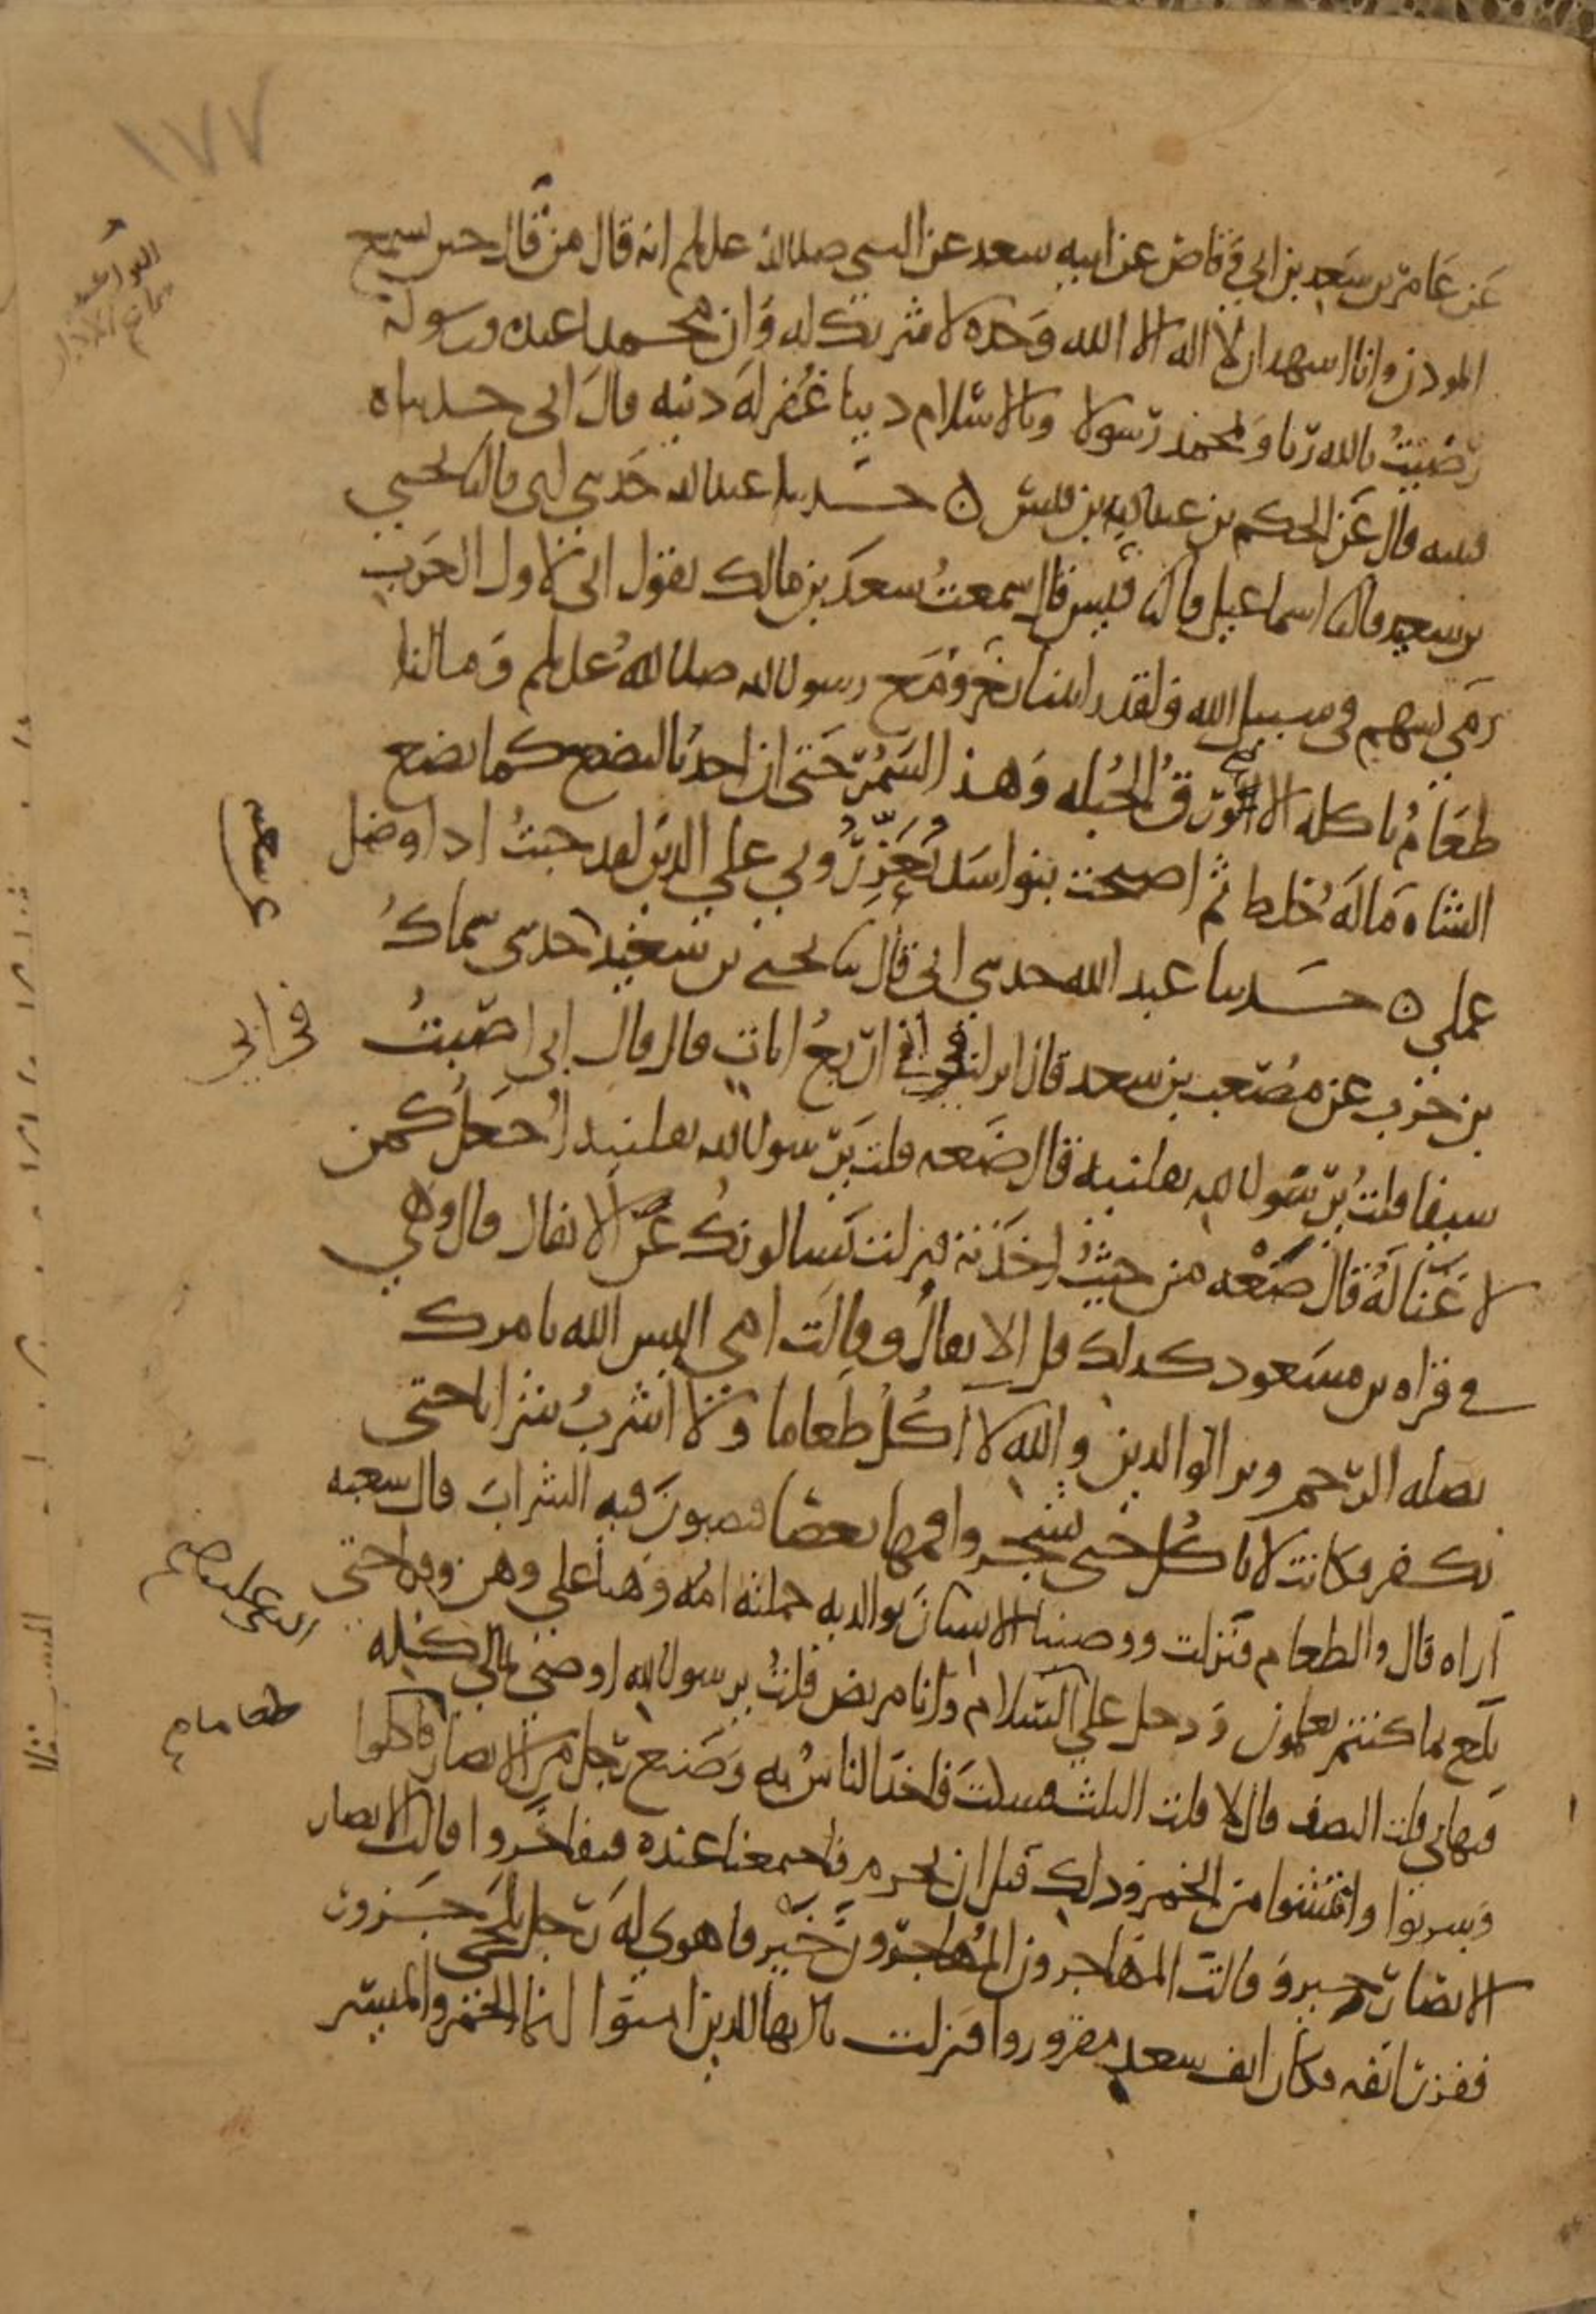 ١٧٧
عن عامر بن سعد بن ابي وقاص عن ابيه سعد عن النبي صلى الله عليه وسلم انه قال من قال حين يسمع
الموذن وانا اشهد ان لا اله الا الله وحده لا شريك له وان محمدا عبده ورسوله
رضيت بالله ربا وبمحمد رسولا وبالاسلام دينا غفر له ذنبه قال ابي حدثناه
قتيبه قال عن الحكم بن عبد الله بن قيس ه حدثنا عبد الله حدثني ابي قال ثنا يحيى
بن سعيد قال ثنا اسماعيل قال ثنا قيس قال سمعت سعد بن مالك يقول اني لاول العرب
رمى بسهم في سبيل الله ولقد راتنا نغزو مع رسول الله صلى الله عليه وسلم وما لنا
طعام ناكله الا ورق الحبله وهذا السمر حتى ان احدنا ليضع كما تضع
الشاه ماله خلط ثم اصبحت بنو اسد يعزروني على الدين لقد خبت اذا وضل
عملي ه حدثنا عبد الله حدثني ابي قال ثنا يحيى بن سعيد حدثني سماك
بن حرب عن مصعب بن سعد قال انزلت في ابي اربع ايات قال قال ابي اصبت
سيفا قلت يرسول الله نفلنيه قال ضعه قلت يرسول الله نفلنيه اجعل كمن
لا غنا له قال ضعه من حيث اخذته فنزلت يسالونك عن الانفال قال وهي
في قراه بن مسعود كذلك قل الانفال وقالت امي اليس الله يامرك
بصله الرحم وبر الوالدين والله لا اكل طعاما ولا اشرب شرابا حتى
تكفر فكانت لا تاكل حتى يشجروا فمها بعصا فيصبون فيه الشراب قال شعبه
اراه قال والطعام فنزلت ووصينا الانسان بوالديه حملته امه وهنا على وهن وقرا حتى
بلغ بما كنتم تعملون ودخل علي السلام وانا مريض قلت يرسول الله اوصي بمالي كله
فنهاني قلت النصف قال لا قلت الثلث فسكت فاخذ الناس به وصنع رجل من الانصار فاكلوا
وشربوا وانتشوا من الخمر وذلك قبل ان تحرم فاجتمعنا عنده فتفاخروا وقالت الانصار
الانصار خير وقالت المهاجرون المهاجرون خير فاهوى له رجل بلحيي جزور
ففزر انفه فكان انف سعد مفزورا فنزلت يا ايها الذين امنوا انما الخمر والميسر
شعبه
في ابي
النبي عليه صم
طعاما م